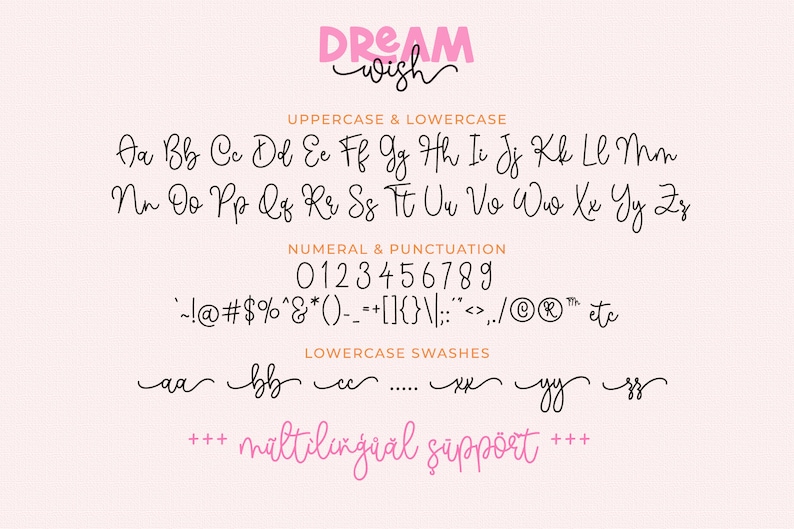 DReAM
wish
UPPERCASE & LOWERCASE
Aa Bb Cc Dd Ee Ff Gg Hh Ii Jj Kk Ll Mm
Nn Oo Pp Qq Rr Ss Tt Uu Vv Ww Xx Yy Zz
NUMERAL & PUNCTUATION
0 1 2 3 4 5 6 7 8 9
`~!@#$%^&*()-_=+[]{}\|;:'"<>,./©®™ etc
LOWERCASE SWASHES
aa bb cc ..... xx yy zz
+++ mũltïlíňģůăl şūppöřt +++